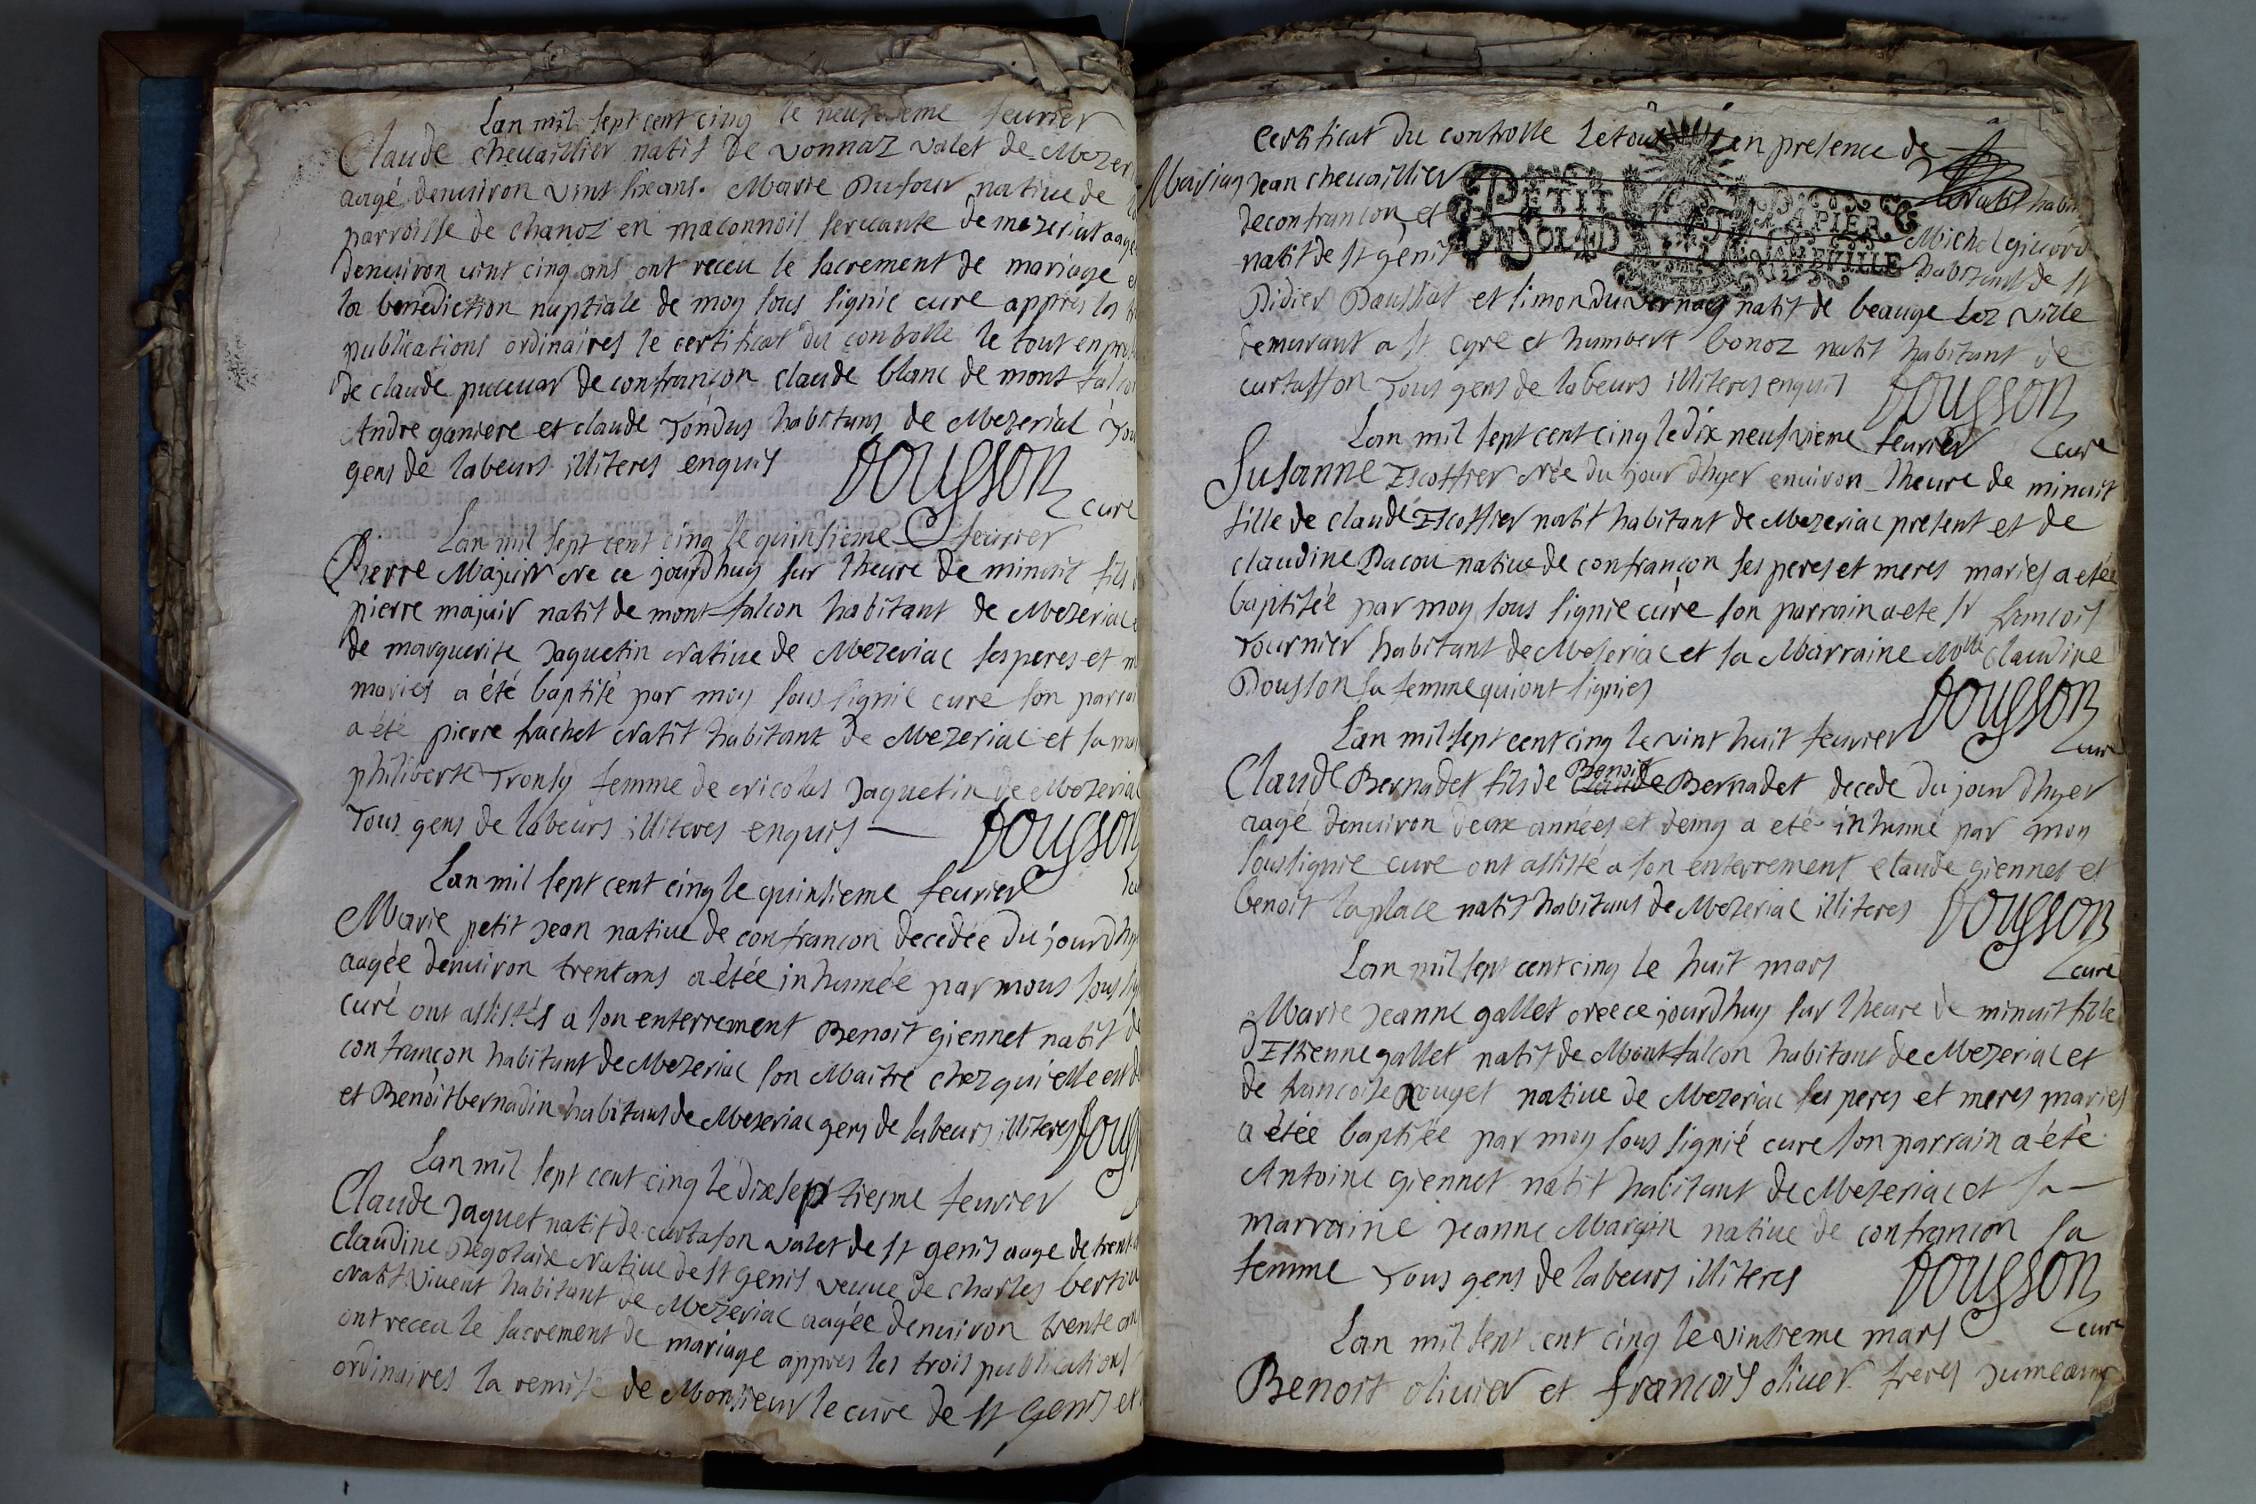 Lan mil sept cent cinq le neufvieme feurier
Claude cheuaillier natif de vonnaz valet de Mezer
aagé denuiron vint sixans. Marie Dufour natiue de
parroisse de chanoz en maconnois seruante de mezeriat aage
denuiron uint cinq ans ont receu le sacrement de mariage e
la benediction nuptiale de moy sous signie cure appres les
publications ordinaires le certificat du controlle le tout en pre
de claude puuuar de confrançon claude blanc de mont falcon
Andre ganiere et claude Tondus habitans de Mezeriat Tou
gens de labeurs illiteres enquis Dousson
cure
Lan mil sept cent cinq le quinsieme feurier
Pierre Majuir Ne ce jourdhuy sur lheure de minuit fils
pierre majuir natif de mont falcon habitant de Mezeriac
de marguerite Jaquetin Natiue de Mezeriac ses peres et m
mariés a été baptisé par moy sous signie cure son parrai
a été pierre frachet Natif habitant de Mezeriac et sa mar
philiberte Tronsy femme de Nicolas Jaquetin de Mezeriac
Tous gens de labeurs illiteres enquis Dousson
Lan mil sept cent cinq le quinsieme feurier
Marie petit Jean natiue de confrancon decedée du jourdhy
aagée denuiron trentans a étée inhumée par mous sous
curé ont assistés a son enterrement Benoit giennet natif de
confrançon habitant de Mezeriac son Maitre chez qui elle est
et Benoit bernadin habitans de Mezeriac gens de labeurs illiteres Douss
Lan mil sept cent cinq le dix sep tiesme feurier
Claude Jaquet natif de curtafon valet de st genis aage de trent
claudine Degolaix Natiue de st genis veuue de charles bertou
Natif viuent habitant de Mezeriac aagée denuiron trente an
ont receu le sacrement de mariage appres les trois publications
ordinaires la remise de Monsieur le cure de st Genis et
certificat du controlle Le tout en presence de
Jean cheuaillier habit
de confrancon et Michel giuord
natif de st genis habitant de st
PETIT PAPIER
Didier Daussiat et simon du vernay natif de beauge lez ville
demurant a st cyre et humbert bonoz natif habitant de
curtaffon Tous gens de labeurs illiteres enquis Dousson
Lan mil sept cent cinq le dix neufvieme feurier cure
Susanne Escoffier Née du jour dhyer enuiron lheure de minuit
fille de claude Escoffier natif habitant de Mezeriac present et de
claudine Dacou natiue de confrançon ses peres et meres mariés a etée
baptisée par moy sous signie cure son parrain a ete sr francois
Tournier habitant de Meseriac et sa Marraine Mlle Claudine
Dousson sa femme qui ont signies Dousson
Lan mil sept cent cinq le vint huit feurier cure
Claude Bernadet fils de Benoit Claude Bernadet decede du jour dhyer
aagé denuiron deux années et demy a eté inhumé par moy
soussignie cure ont assisté a son enterrement claude giennet et
benoit laplace natif habitans de Mezeriac illiteres Dousson
Lan mil sept cent cinq le huit mars curé
Marie Jeanne gallet Neece jourdhuy sur lheure de minuit fille
d Estienne gallet natif de Montfalcon habitant de Mezeriac et
de francoise Rouget natiue de Mezeriac ses peres et meres mariés
a étée baptisée par moy sous signié cure son parrain a été
Antoine giennet natif habitant de Mezeriac et sa
marraine Jeanne Margin natiue de confrancon sa
femme Tous gens de labeurs illiteres Dousson
Lan mil sept cent cinq le vintieme mars cure
Benoit oliuier et francois oliuer freres Jumeaux